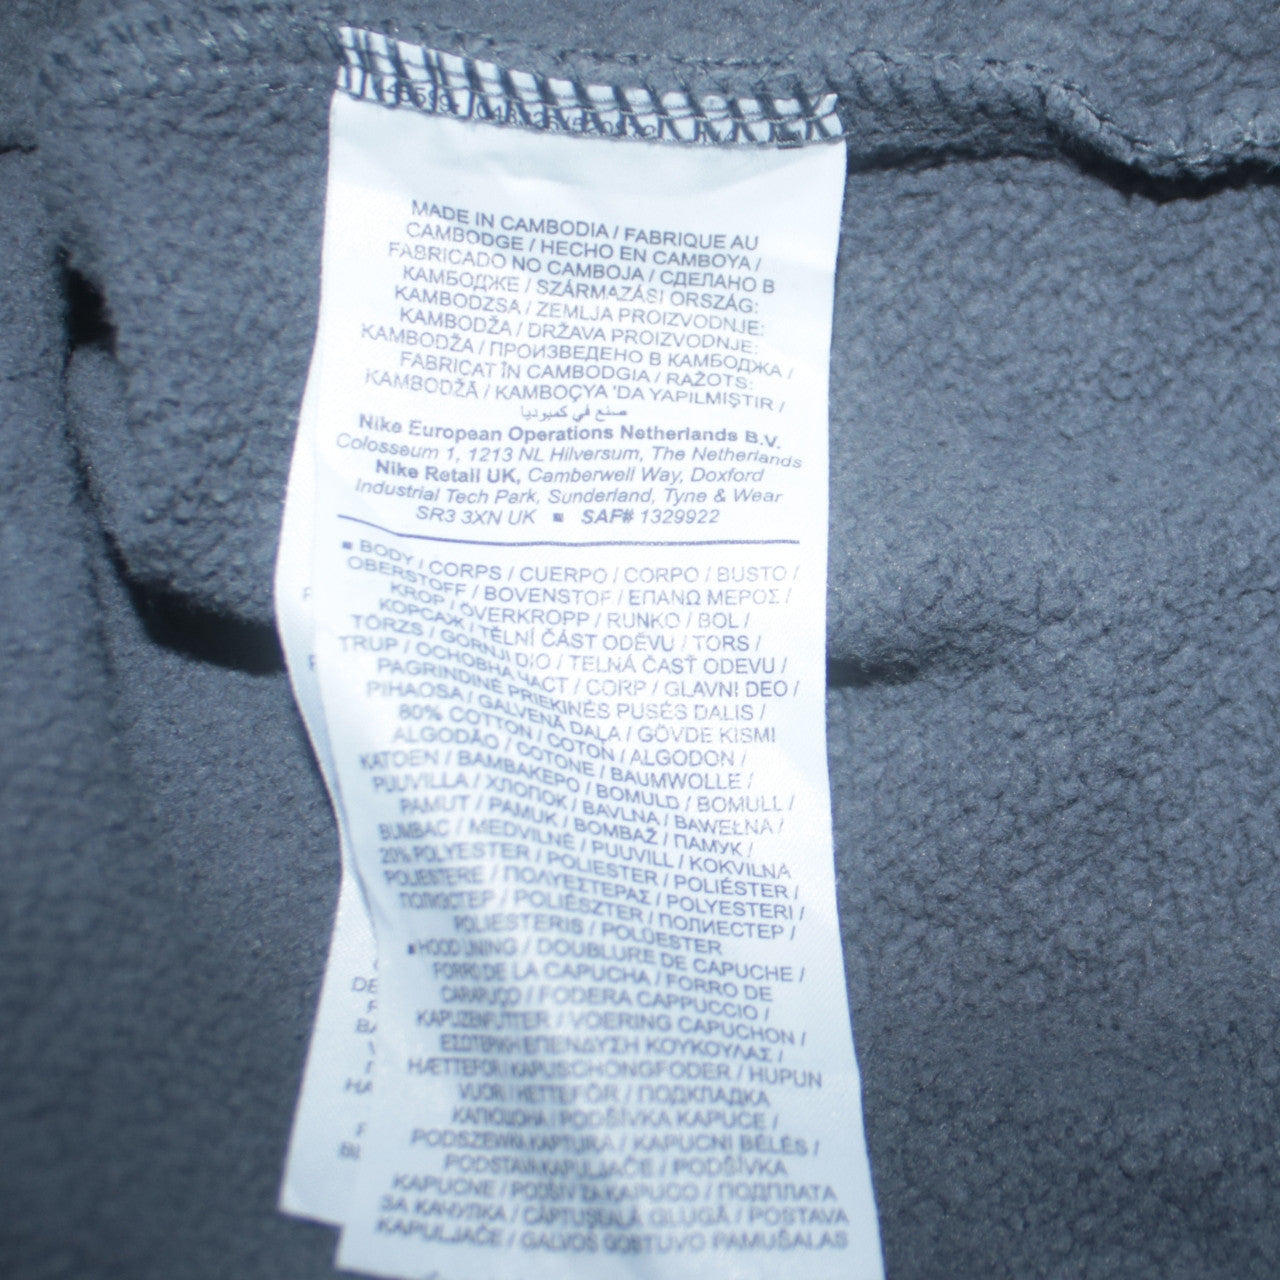 MADE IN CAMBODIA / FABRIQUE AU
CAMBODGE / HECHO EN CAMBOYA /
FABRICADO NO CAMBOJA / СДЕЛАНО В
КАМБОДЖЕ / SZÁRMAZÁSI ORSZÁG:
KAMBODZSA / ZEMLJA PROIZVODNJE:
KAMBODŽA / DRŽAVA PROIZVODNJE:
KAMBODŽA / ПРОИЗВЕДЕНО В КАМБОДЖА /
FABRICAT ÎN CAMBODGIA / RAŽOTS:
KAMBODŽĀ / KAMBOÇYA 'DA YAPILMIŞTIR /
صنع في كمبوديا
Nike European Operations Netherlands B.V.
Colosseum 1, 1213 NL Hilversum, The Netherlands
Nike Retail UK, Camberwell Way, Doxford
Industrial Tech Park, Sunderland, Tyne & Wear
SR3 3XN UK ■ SAF# 1329922
■ BODY / CORPS / CUERPO / CORPO / BUSTO /
OBERSTOFF / BOVENSTOF / ΕΠΑΝΩ ΜΕΡΟΣ /
KROP / OVERKROPP / RUNKO / BOL /
КОРСАЖ / TĚLNÍ ČÁST ODĚVU / TORS /
TÖRZS / GORNJI DIO / TELNÁ ČASŤ ODEVU /
TRUP / ОСНОВНА ЧАСТ / CORP / GLAVNI DEO /
PAGRINDINĖ PRIEKINĖS PUSĖS DALIS /
PIHAOSA / GALVENĀ DAĻA / GÖVDE KISMI
80% COTTON / COTON / ALGODON /
ALGODÃO / COTONE / BAUMWOLLE /
KATOEN / ΒΑΜΒΑΚΕΡΟ / BOMULD / BOMULL /
PUUVILLA / ХЛОПОК / BAVLNA / BAWEŁNA /
PAMUT / PAMUK / BOMBAŽ / ПАМУК /
BUMBAC / MEDVILNĖ / PUUVILL / KOKVILNA
20% POLYESTER / POLIESTER / POLIÉSTER /
POLIESTERE / ΠΟΛΥΕΣΤΕΡΑΣ / POLYESTERI /
ПОЛИЭСТЕР / POLIÉSZTER / ПОЛИЕСТЕР /
POLIESTERIS / POLÜESTER
■ HOOD LINING / DOUBLURE DE CAPUCHE /
FORRO DE LA CAPUCHA / FORRO DE
CARAPUÇO / FODERA CAPPUCCIO /
KAPUZENFUTTER / VOERING CAPUCHON /
ΕΣΩΤΕΡΙΚΗ ΕΠΕΝΔΥΣΗ ΚΟΥΚΟΥΛΑΣ /
HÆTTEFOR / KAPUSCHONGFODER / HUPUN
VUORI / HETTEFÔR / ПОДКЛАДКА
КАПЮШОНА / PODŠÍVKA KAPUCE /
PODSZEWKA KAPTURA / KAPUCNI BÉLÉS /
PODSTAVA KAPULJAČE / PODŠÍVKA
KAPUCNE / KAPUCO / ПОДПЛАТА
ЗА КАЧУЛКА / CĂPTUŞEALĂ GLUGĂ / POSTAVA
KAPULJAČE / GOBTUVO PAMUŠALAS